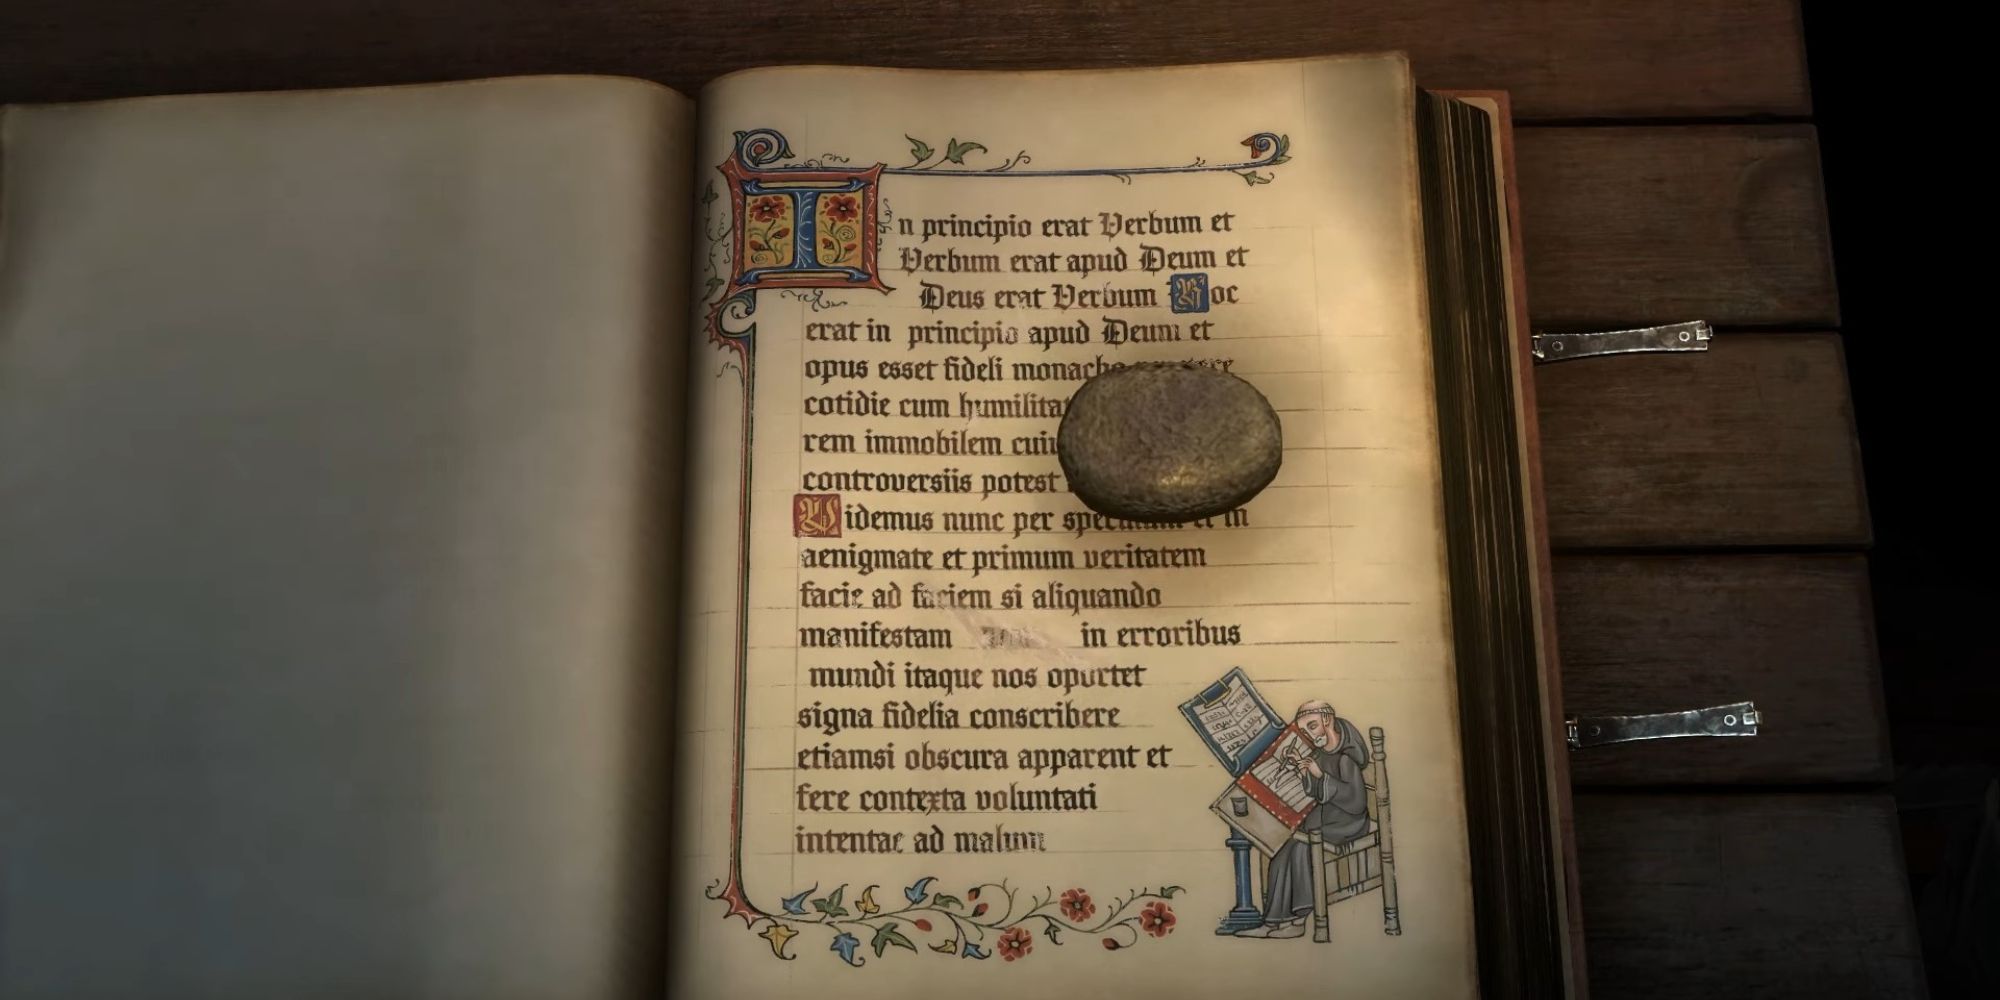 In principio erat Verbum et
Verbum erat apud Deum et
Deus erat Verbum Hoc
erat in principio apud Deum et
opus esset fideli monacho
cotidie cum
rem immobilem
controversiis potest
Videmus nunc per speculum et in
aenigmate et primum veritatem
facie ad faciem si aliquando
manifestam in erroribus
mundi itaque nos oportet
signa fidelia conscribere
etiamsi obscura apparent et
fere contexta voluntati
intentae ad malum